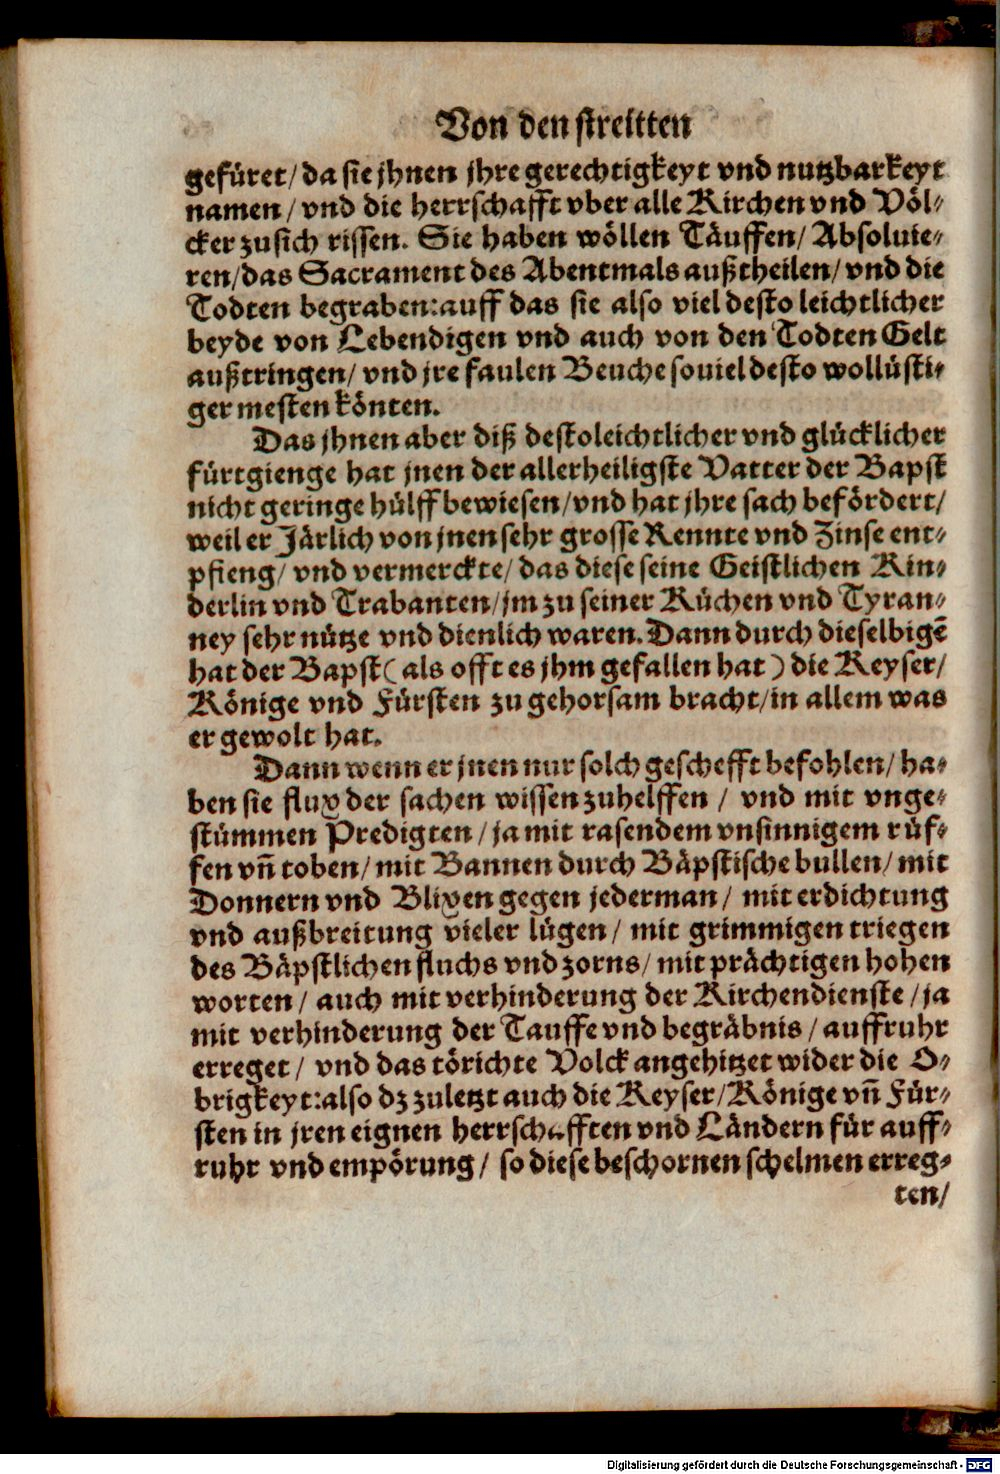 Von den streitten
gefüret/ da sie jhnen jhre gerechtigkeyt vnd nutzbarkeyt
namen/ vnd die herrschafft vber alle Kirchen vnd Völ-
cker zu sich rissen. Sie haben wöllen Täuffen/ Absoluie-
ren/ das Sacrament des Abentmals außtheilen/ vnd die
Todten begraben: auff das sie also viel desto leichtlicher
beyde von Lebendigen vnd auch von den Todten Gelt
außtringen/ vnd jre faulen Beuche souiel desto wollüsti-
ger mesten könten.
Das jhnen aber diß desto leichtlicher vnd glücklicher
fürtgienge hat jnen der allerheiligste Vatter der Bapst
nicht geringe hülff bewiesen/ vnd hat jhre sach befördert/
weil er Järlich von jnen sehr grosse Rennte vnd Zinse ent-
pfieng/ vnd vermerckte/ das diese seine Geistlichen Kin-
derlin vnd Trabanten/ jm zu seiner Küchen vnd Tyran-
ney sehr nütze vnd dienlich waren. Dann durch dieselbigē
hat der Bapst (als offt es jhm gefallen hat) die Keyser/
Könige vnd Fürsten zu gehorsam bracht/ in allem was
er gewolt hat.
Dann wenn er jnen nur solch geschefft befohlen/ ha-
ben sie flux der sachen wissen zuhelffen/ vnd mit vnge-
stümmen Predigten/ ja mit rasendem vnsinnigem rüf-
fen vñ toben/ mit Bannen durch Bäpstische bullen/ mit
Donnern vnd Blixen gegen jederman/ mit erdichtung
vnd außbreitung vieler lügen/ mit grimmigen triegen
des Bäpstlichen fluchs vnd zorns/ mit prächtigen hohen
worten/ auch mit verhinderung der Kirchendienste/ ja
mit verhinderung der Tauffe vnd begräbnis/ auffruhr
erreget/ vnd das törichte Volck angehitzet wider die O-
brigkeyt: also dz zuletzt auch die Keyser/ Könige vñ Für-
sten in jren eignen herrschafften vnd Ländern für auff-
ruhr vnd empörung/ so diese beschornen schelmen erreg-
ten/
Digitalisierung gefördert durch die Deutsche Forschungsgemeinschaft - DFG